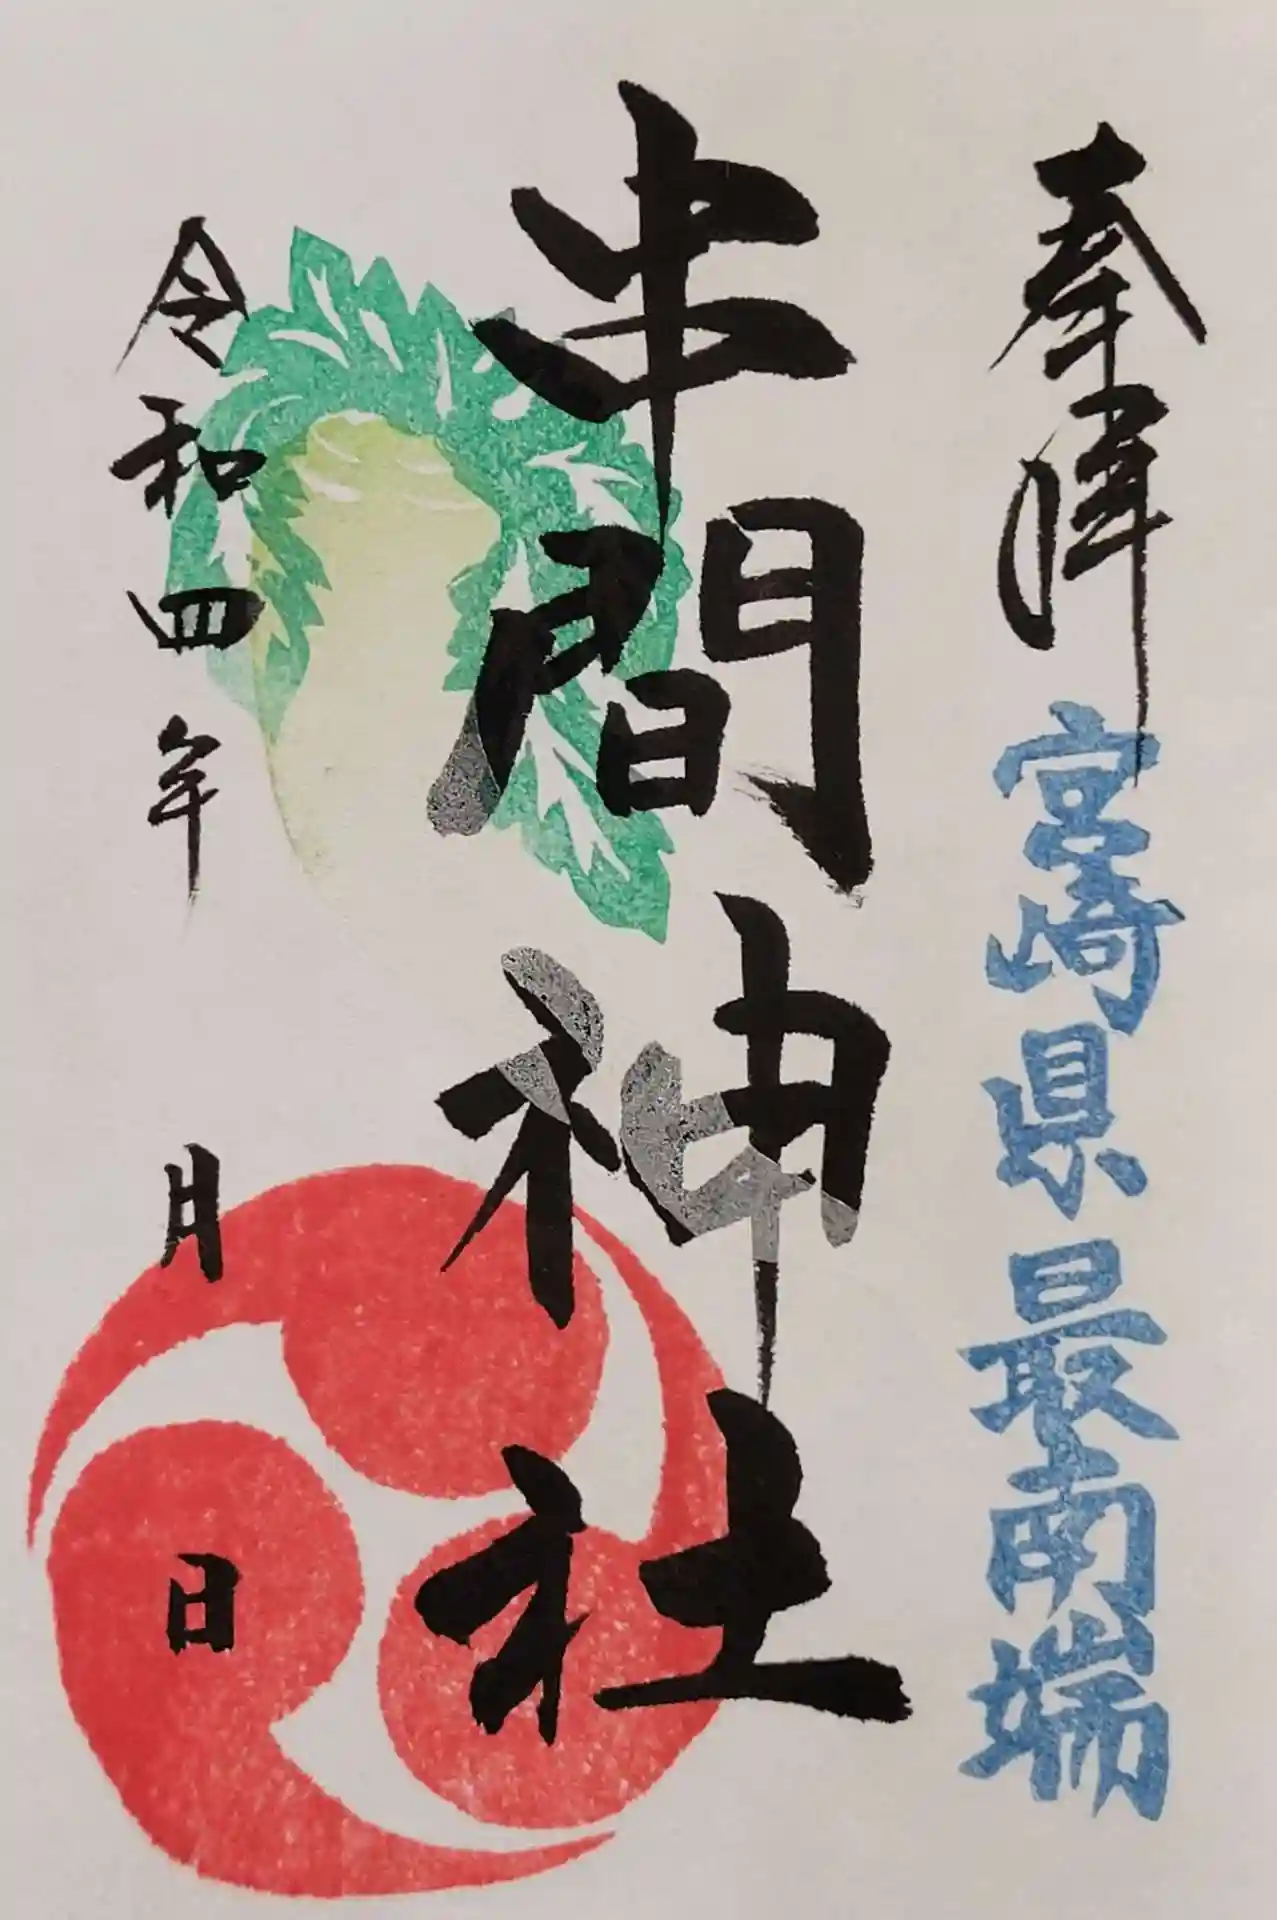 奉拝
宮崎県最南端
串間神社
令和四年
月
日